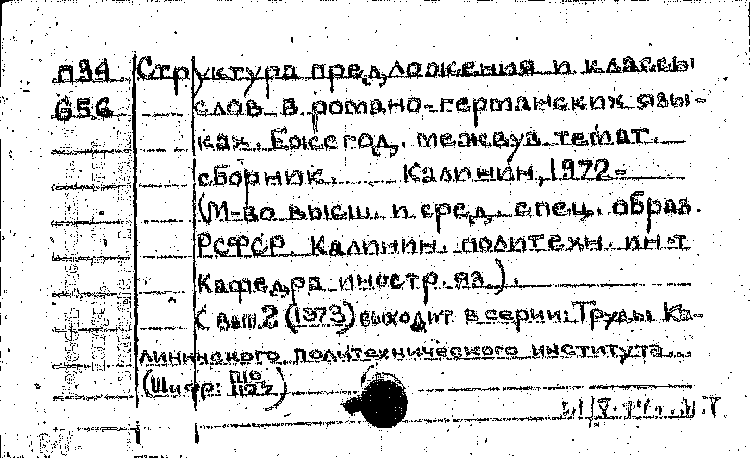 П34 Структура предложения и классы
656 слов в романо-германских язы-
ках. Ежегод. межвуз. темат.
сборник. Калинин, 1972-
(М-во высш. и сред. спец. образ.
РСФСР. Калинин. политехн. ин-т
Кафедра иностр. яз.).
С вып. 2 (1973) выходит в серии: Труды Ка-
лининского политехнического института...
(Шифр: П10